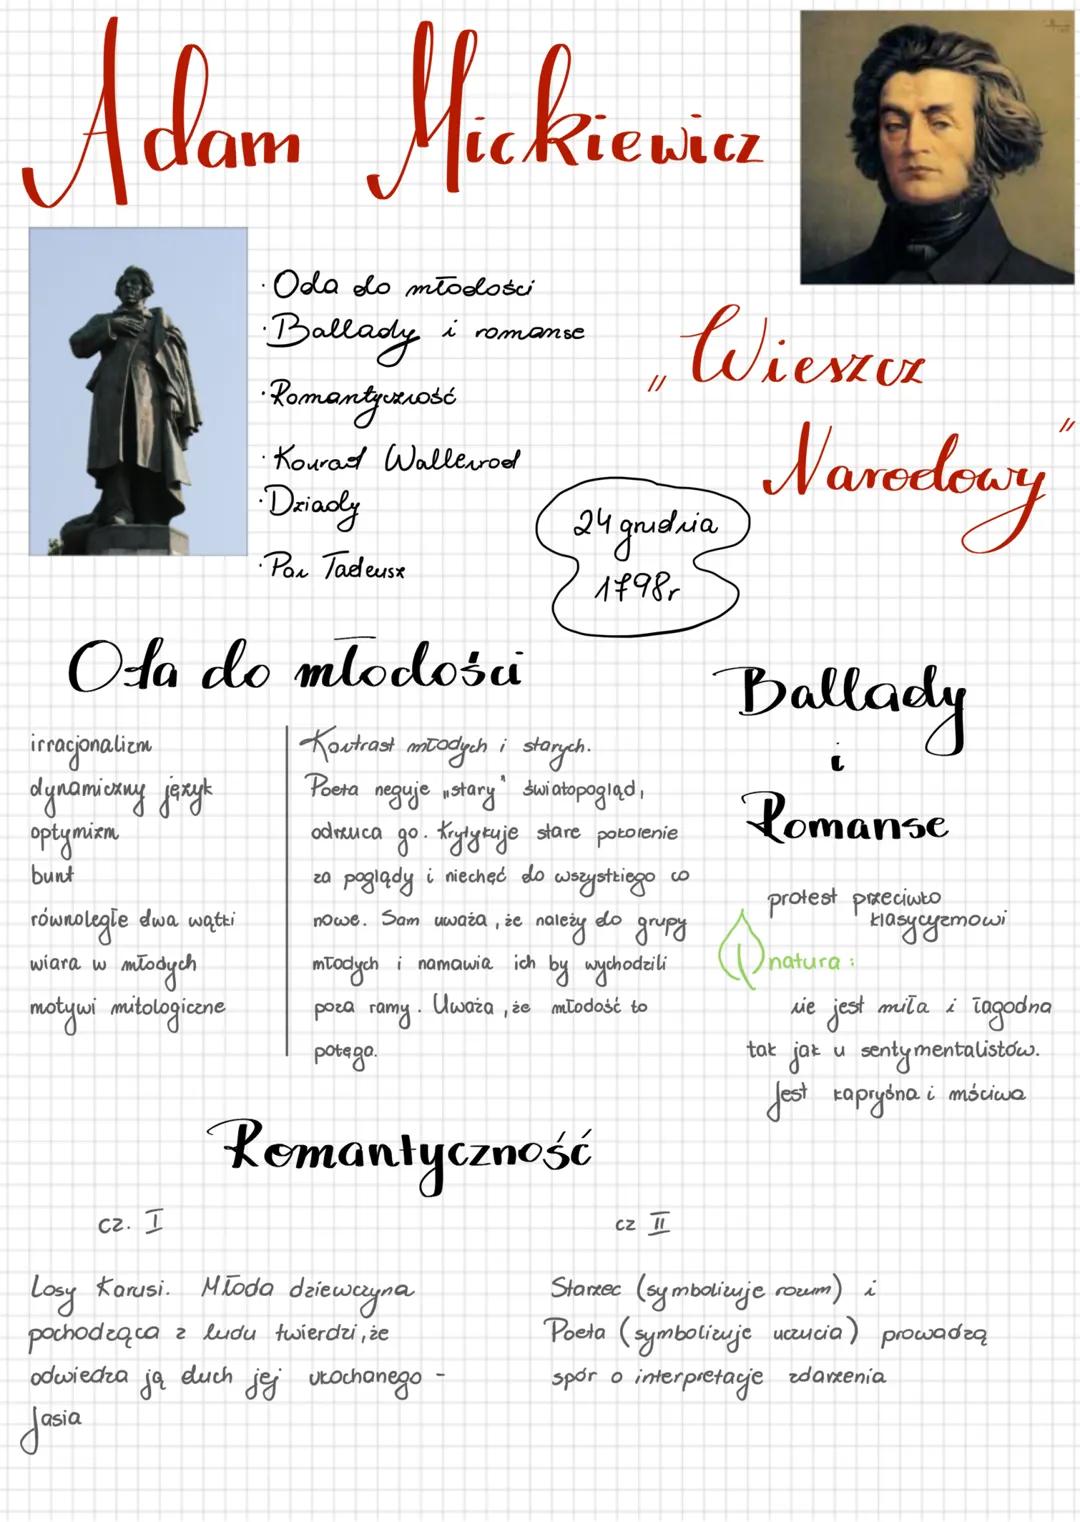 Adam Mickiewicz
· Oda do młodości
· Ballady i romanse
· Romantyczność
· Konrad Wallenrod
· Dziady
· Pan Tadeusz
„Wieszcz
Narodowy"
24 grudnia
1798r
Oda do młodości
irracjonalizm
dynamiczny język
optymizm
bunt
równoległe dwa wątki
wiara w młodych
motywi mitologiczne
Kontrast młodych i starych.
Poeta neguje „stary" światopogląd,
odrzuca go. Krytykuje stare pokolenie
za poglądy i niechęć do wszystkiego co
nowe. Sam uważa, że należy do grupy
młodych i namawia ich by wychodzili
poza ramy. Uważa, że młodość to
potęga.
Ballady
i
Romanse
protest przeciwko
klasycyzmowi
natura:
nie jest miła i łagodna
tak jak u sentymentalistów.
Jest kapryśna i mściwa
Romantyczność
cz. I
Losy Karusi. Młoda dziewczyna
pochodząca z ludu twierdzi, że
odwiedza ją duch jej ukochanego -
Jasia
cz II
Starzec (symbolizuje rozum) i
Poeta (symbolizuje uczucia) prowadzą
spór o interpretację zdarzenia